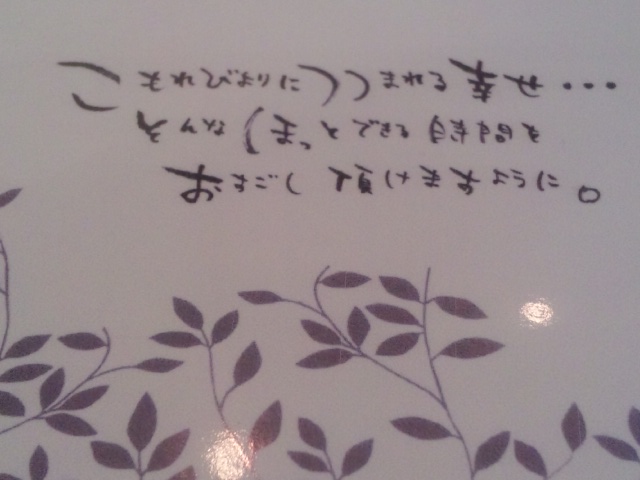 こもれびよりにつつまれる幸せ・・・
そんなほっとできる時間を
おすごし頂けますように。